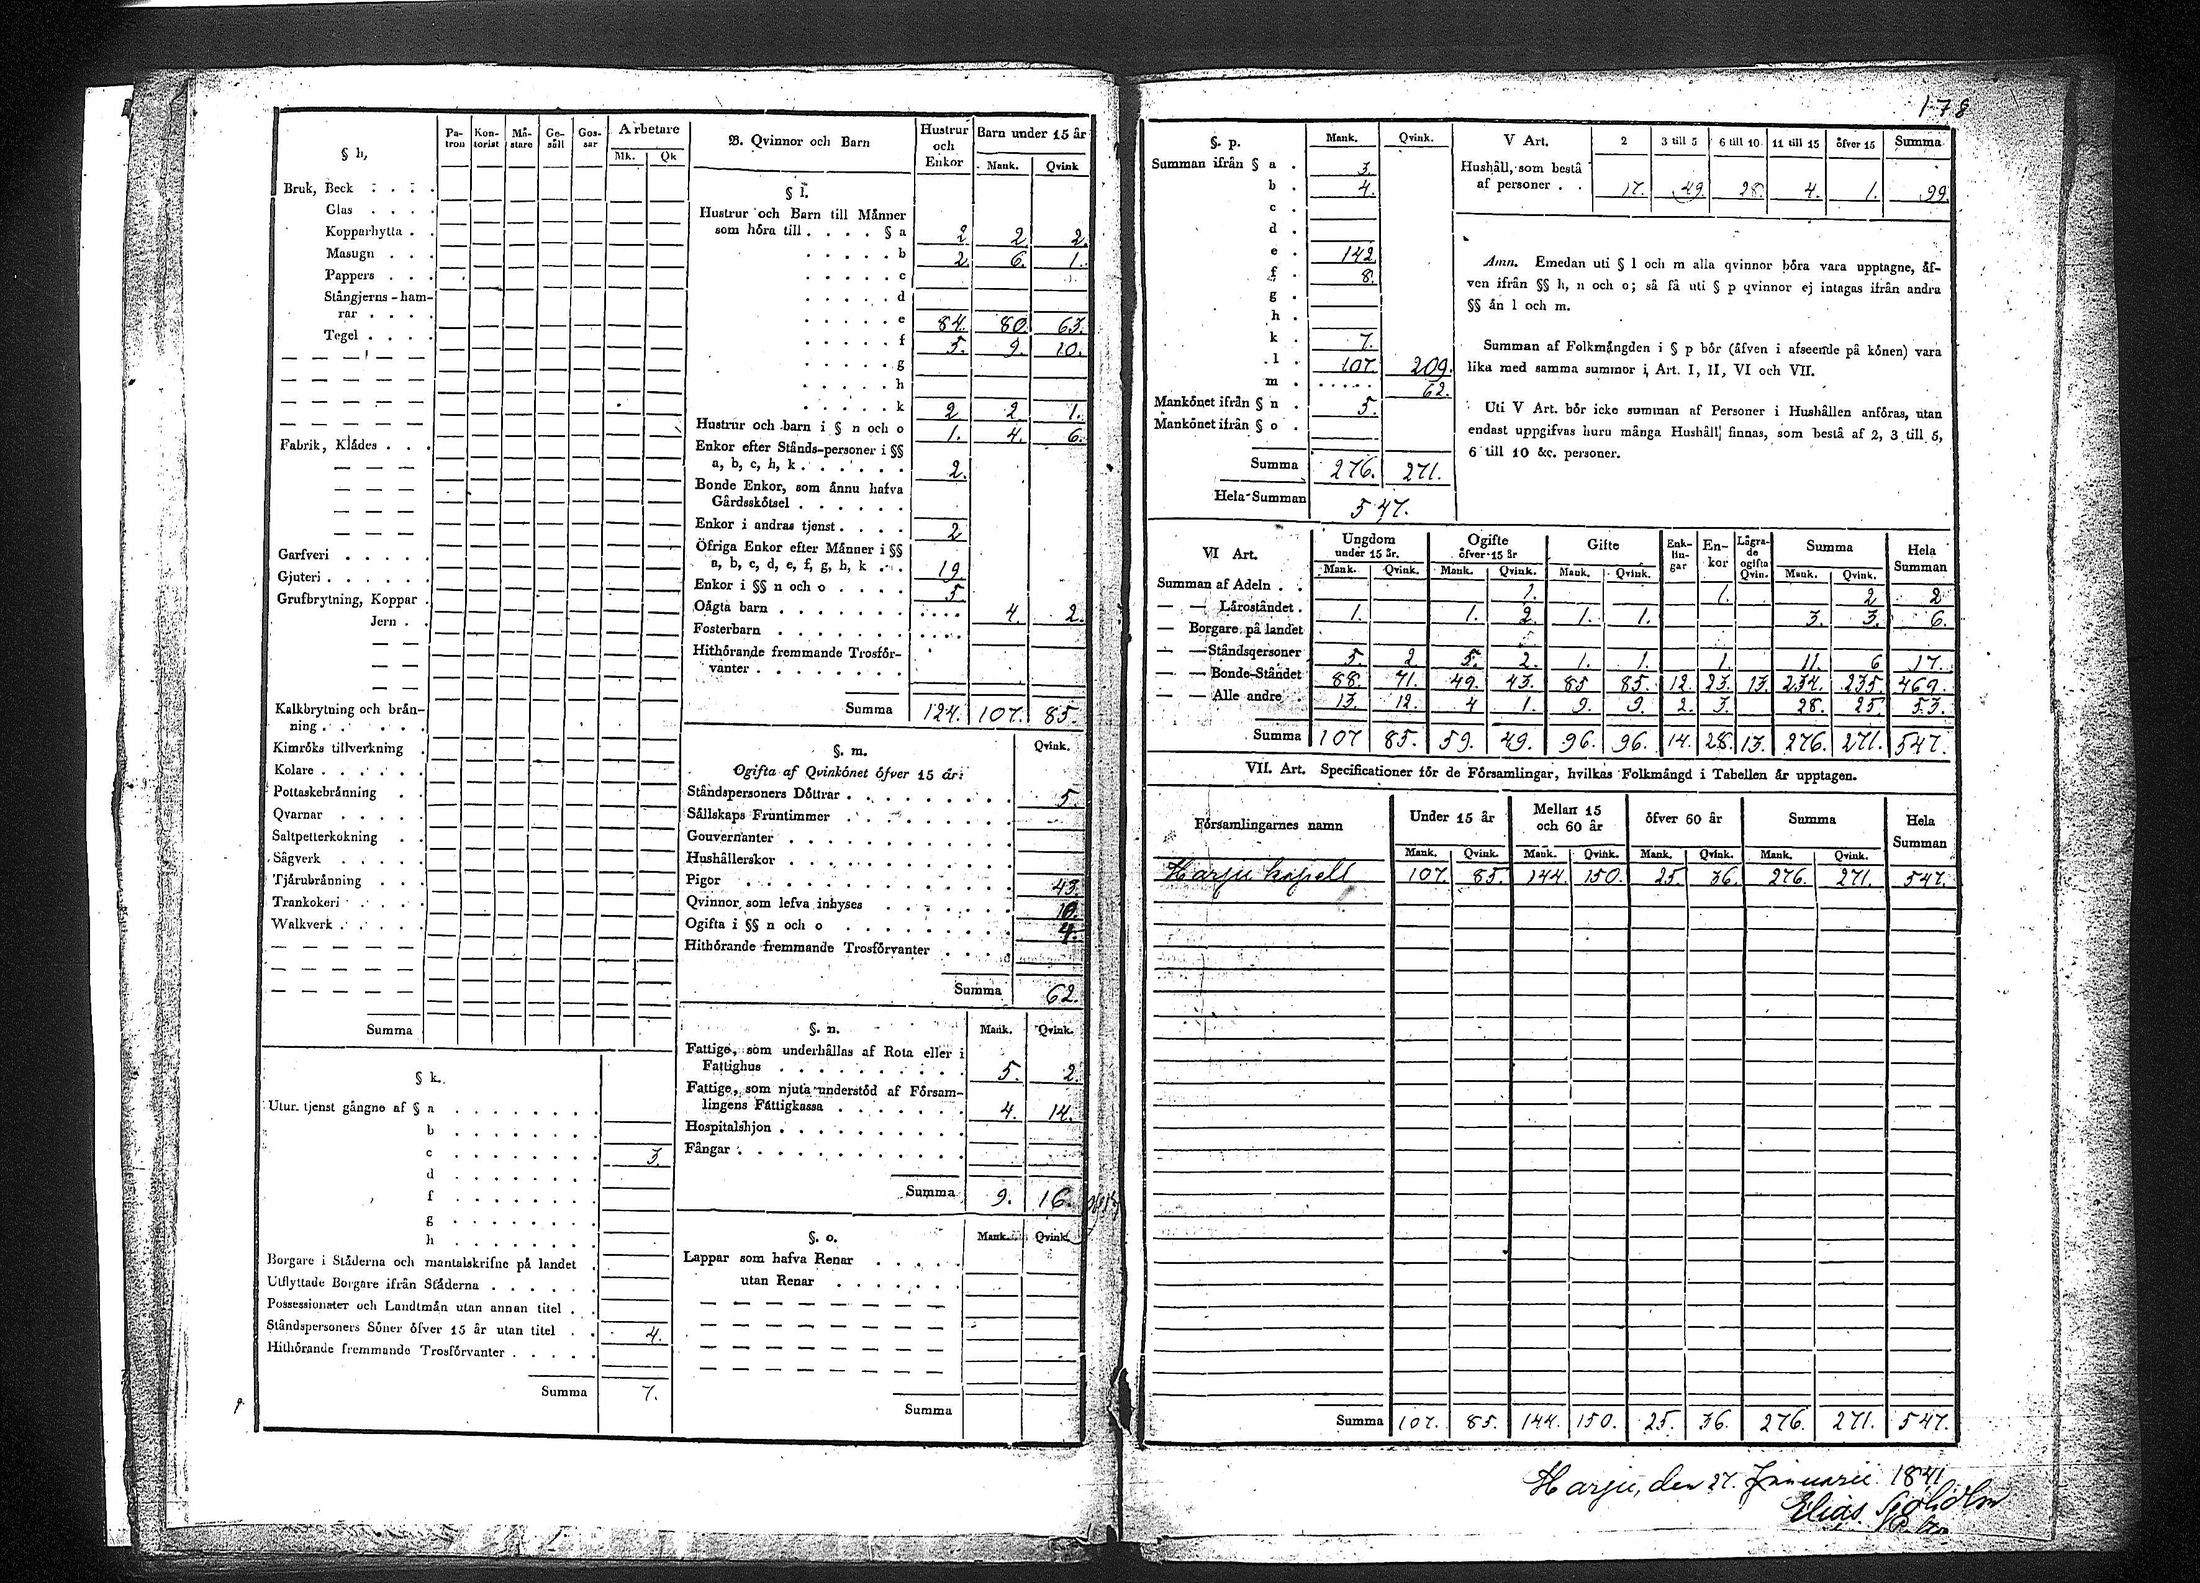 178
§ h,
Pa-tron Kon-torist Må-stare Ge-säll Gos-sar Arbetare
Mk. Qk
Bruk, Beck
Glas
Kopparhytta
Masugn
Pappers
Stångjerns-ham-
rar
Tegel
Fabrik, Klådes
Garfveri
Gjuteri
Grufbrytning, Koppar
Jern
Kalkbrytning och brån-
ning
Kimröks tillverkning
Kolare
Pottaskebrånning
Qvarnar
Saltpetterkokning
Sågverk
Tjårubrånning
Trankokeri
Walkverk
Summa
§ k.
Utur tjenst gångne af § a
b
c 3.
d
f
g
h
Borgare i Ståderna och mantalskrifne på landet
Utflyttade Borgare ifrån Ståderna
Possessionater och Landtmån utan annan titel
Ståndspersoners Söner öfver 15 år utan titel 4.
Hithörande fremmande Trosförvanter
Summa 7.
B. Qvinnor och Barn Hustrur och Enkor Barn under 15 år
Mank. Qvink
§ l.
Hustrur och Barn till Månner
som höra till § a 2 2 2.
b 2. 6. 1.
c
d
e 84. 80. 63.
f 5. 9. 10.
g
h
k 2 2. 1.
Hustrur och barn i § n och o 1. 4. 6.
Enkor efter Stånds-personer i §§
a, b, c, h, k 2.
Bonde Enkor, som ånnu hafva
Gårdsskötsel
Enkor i andras tjenst 2
Öfriga Enkor efter Månner i §§
a, b, c, d, e, f, g, h, k 19
Enkor i §§ n och o 5
Oågta barn 4. 2.
Fosterbarn
Hithörande fremmande Trosför-
vanter
Summa 124. 107. 85.
§. m. Qvink.
Ogifta af Qvinkönet öfver 15 år:
Ståndspersoners Döttrar 5.
Sållskaps Fruntimmer
Gouvernanter
Hushållerskor
Pigor 43.
Qvinnor som lefva inhyses 10.
Ogifta i §§ n och o 4.
Hithörande fremmande Trosförvanter
Summa 62.
§. n. Mank. Qvink.
Fattige, som underhållas af Rota eller i
Fattighus 5. 2.
Fattige, som njuta understöd af Försam-
lingens Fattigkassa 4. 14.
Hospitalshjon
Fångar
Summa 9. 16.
§. o. Mank. Qvink.
Lappar som hafva Renar
utan Renar
Summa
§. p. Mank. Qvink.
Summan ifrån § a 3.
b 4.
c
d
e 142
f 8.
g
h
k 7.
l 107 209.
m 62.
Mankönet ifrån § n 5.
Mankönet ifrån § o
Summa 276. 271.
Hela Summan 547.
V Art. 2 3 till 5 6 till 10 11 till 15 öfver 15 Summa
Hushåll, som bestå
af personer 17. 49. 28. 4. 1. 99.
Anm. Emedan uti § l och m alla qvinnor böra vara upptagne, åf-
ven ifrån §§ h, n och o; så få uti § p qvinnor ej intagas ifrån andra
§§ ån l och m.
Summan af Folkmångden i § p bör (åfven i afseende på könen) vara
lika med samma summor i Art. I, II, VI och VII.
Uti V Art. bör icke summan af Personer i Hushållen anföras, utan
endast uppgifvas huru många Hushåll finnas, som bestå af 2, 3 till 5,
6 till 10 &c. personer.
VI Art. Ungdom under 15 år. Ogifte öfver 15 år Gifte Enk-lin-gar En-kor Lågra-de ogifta Qvin. Summa Hela Summan
Mank. Qvink. Mank. Qvink. Mank. Qvink. Mank. Qvink.
Summan af Adeln 1. 1. 2 2
— — Låroståndet 1. 1. 2. 1. 1. 3. 3. 6.
— Borgare på landet
— — Ståndspersoner 5. 2 5. 2. 1. 1. 1. 11. 6 17.
— — Bonde-Ståndet 88. 71. 49. 43. 85 85. 12. 23. 13. 234. 235. 469.
— — Alle andre 13. 12. 4 1. 9. 9. 2. 3. 28. 25. 53.
Summa 107 85. 59. 49. 96. 96. 14. 28. 13. 276. 271. 547.
VII. Art. Specificationer för de Församlingar, hvilkas Folkmångd i Tabellen år upptagen.
Församlingarnes namn Under 15 år Mellan 15 och 60 år öfver 60 år Summa Hela Summan
Mank. Qvink. Mank. Qvink. Mank. Qvink. Mank. Qvink.
Harju kapell 107. 85. 144. 150. 25. 36. 276. 271. 547.
Summa 107. 85. 144. 150. 25. 36. 276. 271. 547.
Harju, den 27. Januarii 1841
Elias